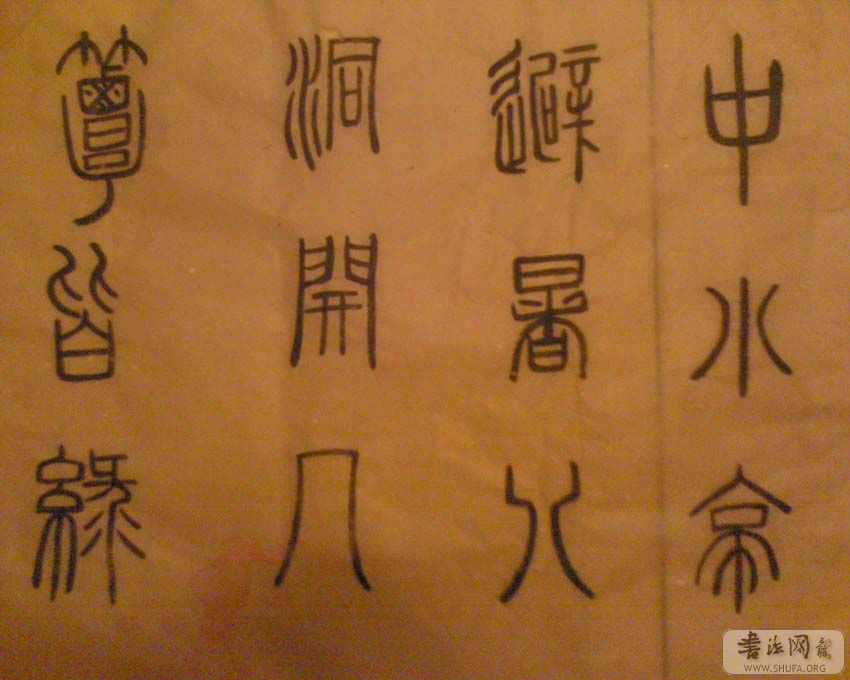 中水亭
避暑八
洞開几
簟皆綠
書法网
WWW.SHUFA.ORG